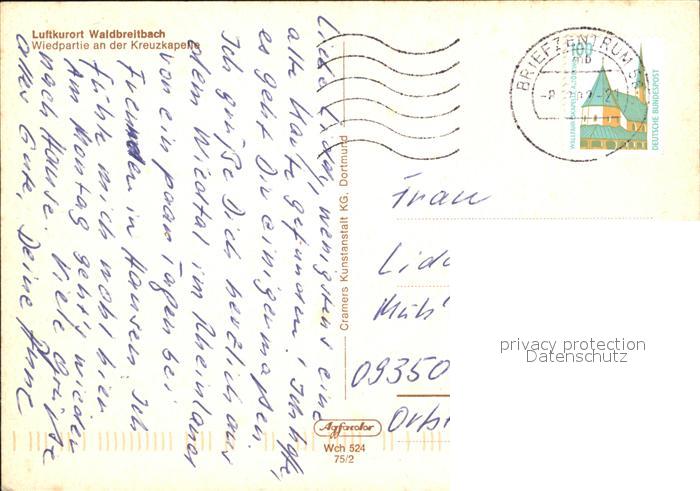 Luftkurort Waldbreitbach
Wiedpartie an der Kreuzkapelle
Liebe Lida, wenigstens eine
alte Karte gefunden! Ich hoffe,
es geht Dir einigermaßen.
Ich grüße Dich herzlich aus
dem Wiedtal im Rheinland
von ein paar Tagen bei
Freunden in Hausen. Ich
fühle mich wohl hier.
Am Montag geht's wieder
nach Hause. Viele Grüße
alles Gute, Deine Anne
Cramers Kunstanstalt KG. Dortmund
BRIEFZENTRUM 56
100
WALLFAHRTSKAPELLE ALTÖTTING
DEUTSCHE BUNDESPOST
Frau
Lid
Müh
09350
Orts
Agfacolor
Wch 524
75/2
privacy protection
Datenschutz